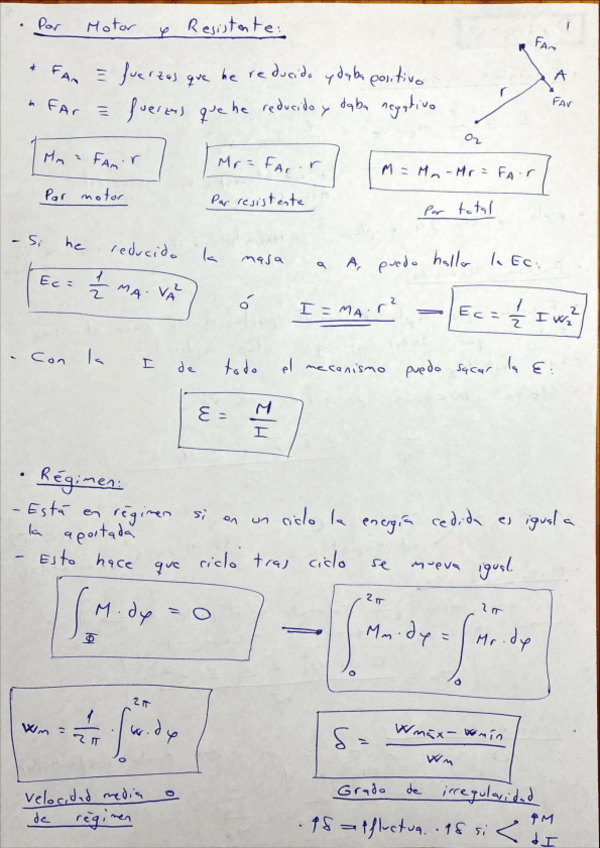 1
· Par Motor y Resistente:
F_Am
A
r
F_Ar
O₂
* F_Am ≡ fuerzas que he reducido y daba positivo
" F_Ar ≡ fuerzas que he reducido y daba negativo
M_m = F_Am · r
M_r = F_Ar · r
M = M_m - M_r = F_A · r
Par motor
Par resistente
Par total
- Si he reducido la masa a A, puedo hallar la Ec:
Ec = 1/2 m_A · V_A²
ó
I = m_A · r²
Ec = 1/2 I w₂²
- Con la I de todo el mecanismo puedo sacar la ε:
ε = M/I
· Régimen:
- Está en régimen si en un ciclo la energía cedida es igual a
la aportada
- Esto hace que ciclo tras ciclo se mueva igual.
∫_Φ M · dφ = 0
∫₀^2π M_m · dφ = ∫₀^2π M_r · dφ
w_m = 1/2π · ∫₀^2π w · dφ
δ = (w_máx - w_mín)/w_m
Velocidad media o
de régimen
Grado de irregularidad
· ↑δ ⇒ ↑fluctua. · ↑δ si < ↑M
↓I